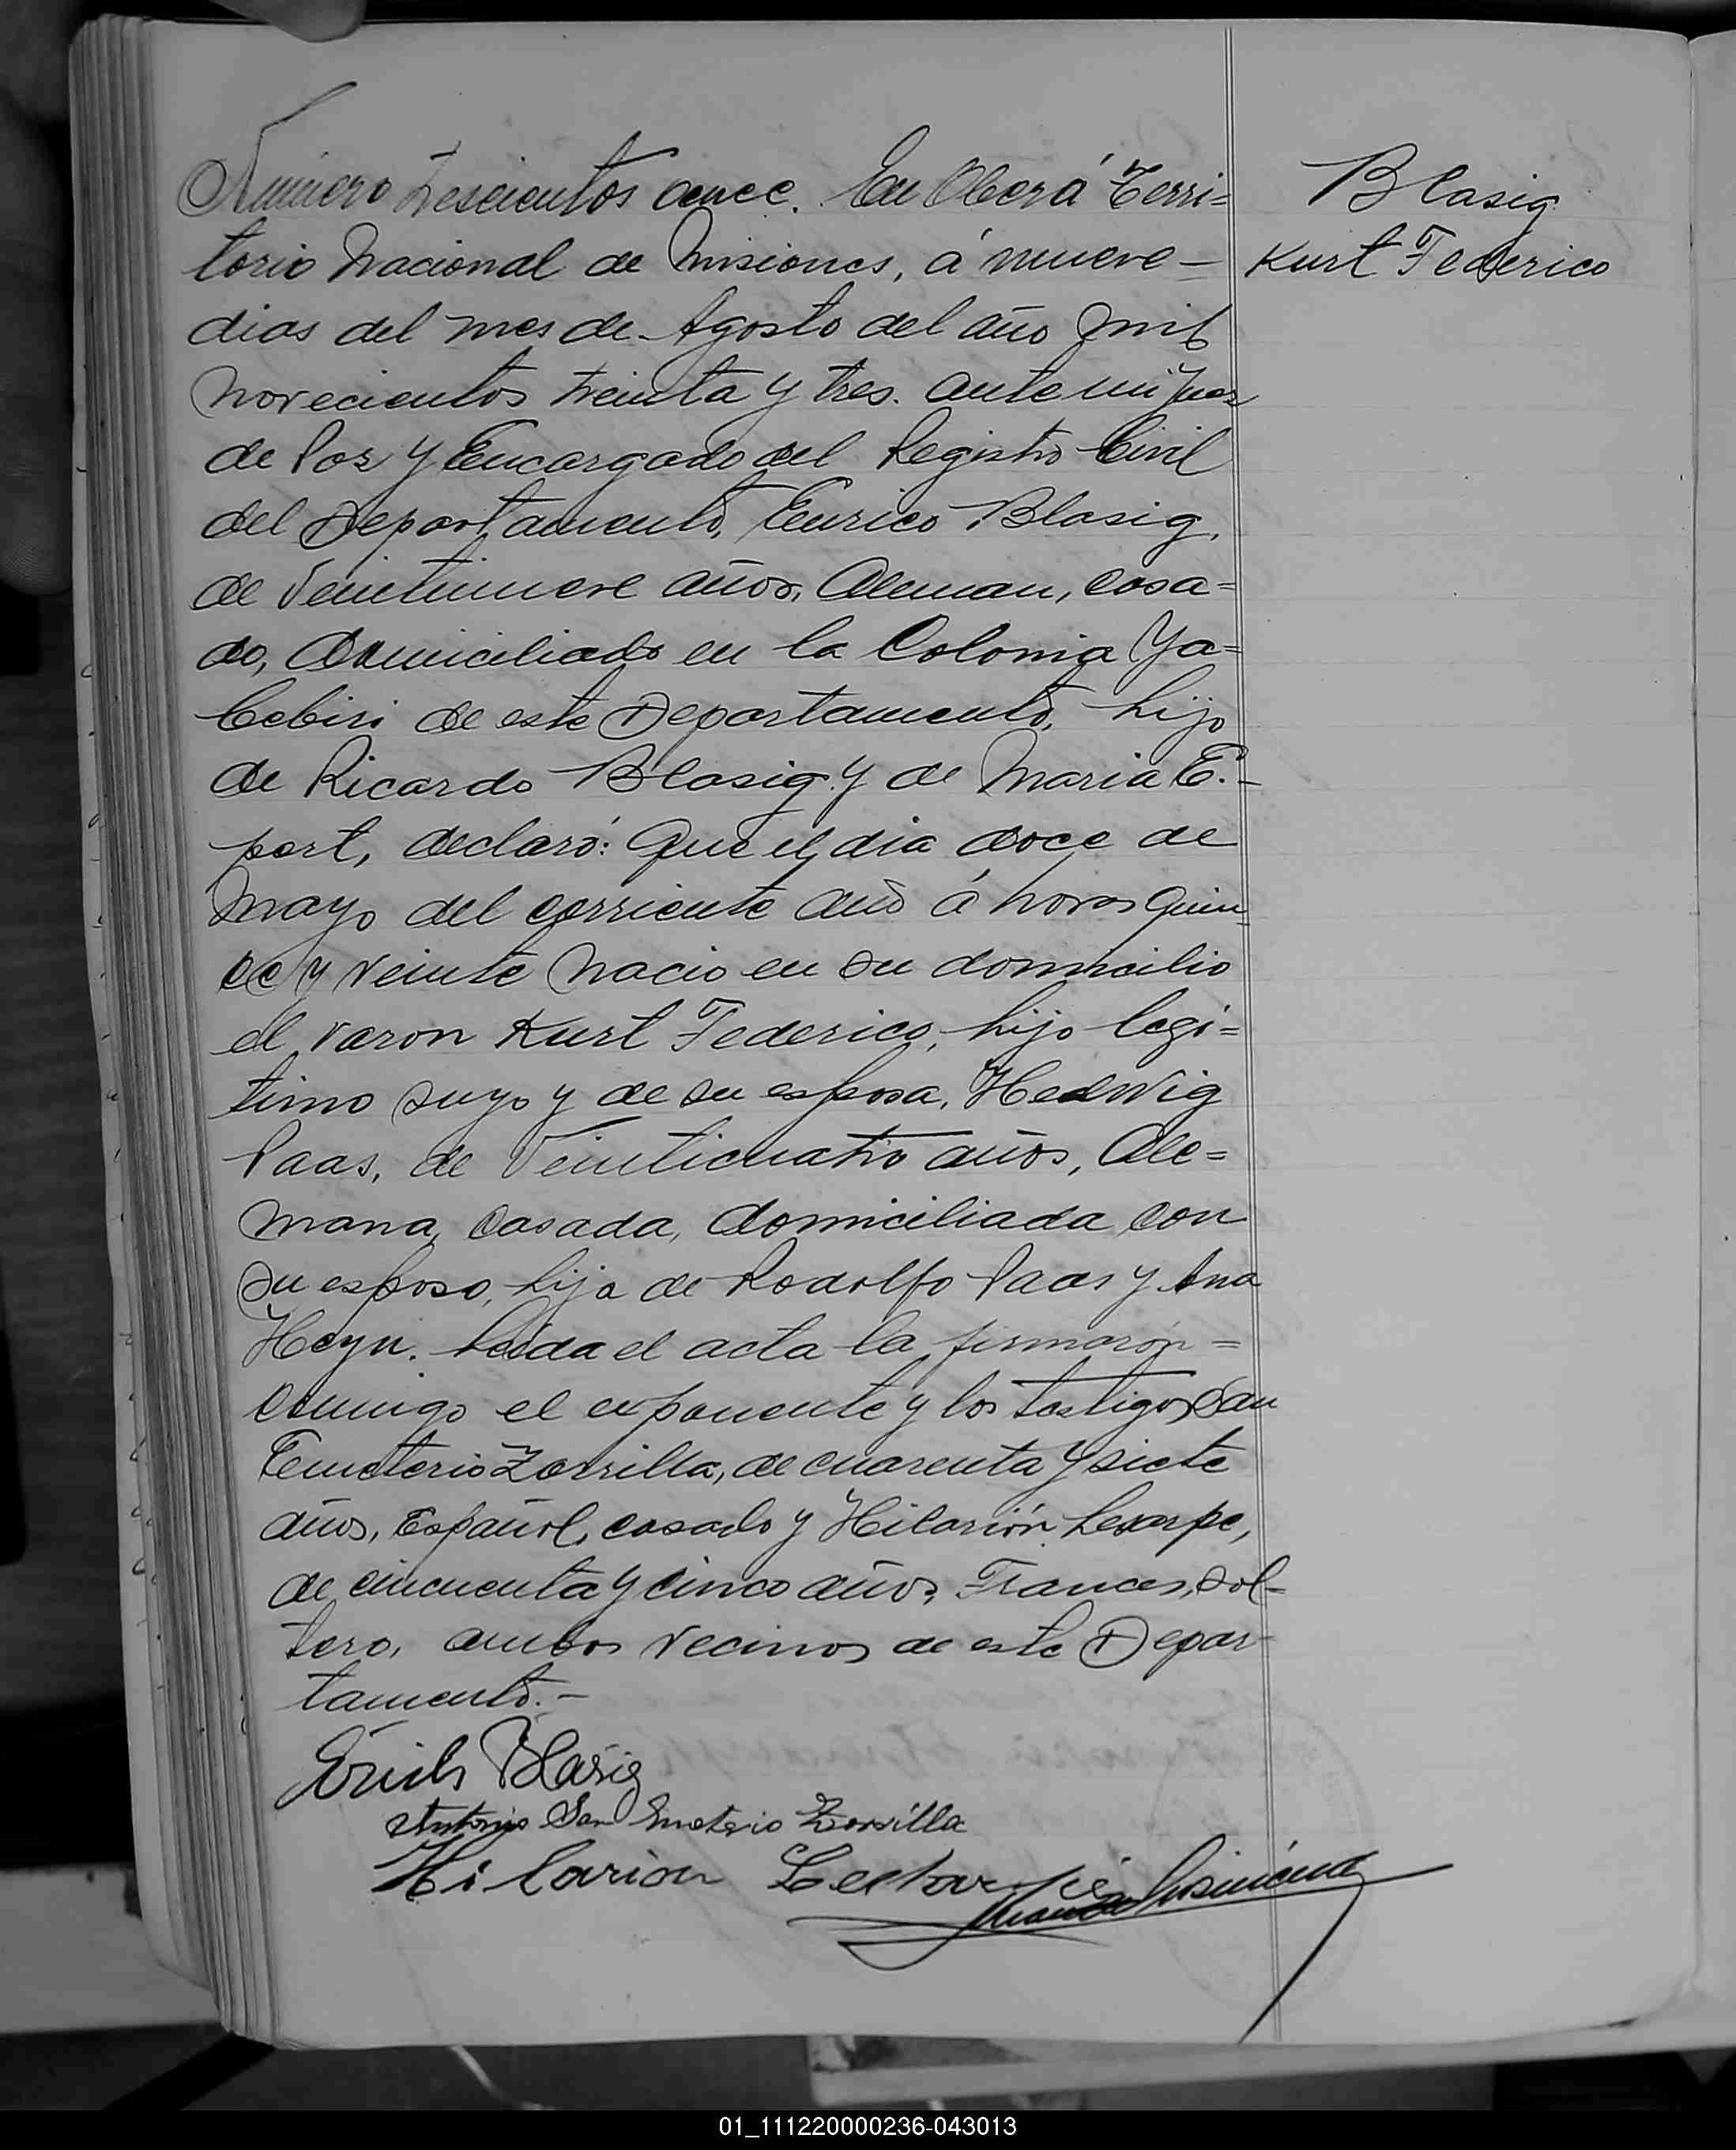 Número Trescientos once. En Oberá Terri=
torio Nacional de Misiones, á nueve -
dias del mes de Agosto del año mil
novecientos treinta y tres. ante mi Juez
de Paz y Encargado del Registro Civil
del Departamento, Enrico Blasig,
de Veintinueve años, Aleman, casa=
do, domiciliado en la Colonia Ya=
bebiri de este Departamento, hijo
de Ricardo Blasig y de Maria E. -
pert, declaró: Que el dia doce de
Mayo del corriente año á horas quin
ce y veinte nacio en su domicilio
el varon Kurt Federico, hijo legi=
timo suyo y de su esposa, Hedwig
Paas, de Veinticuatro años, Ale=
mana, casada, domiciliada con
su esposo, hija de Rodolfo Paas y Ana
Heyn. Leida el acta la firmarón =
conmigo el exponente y los testigos San
Emeterio Zorrilla, de cuarenta y siete
años, Español, casado y Hilarión
de cincuenta y cinco años, Frances, sol-
tero, ambos vecinos de este Depar-
tamento. -
Erich Blasig
Antonio San Emeterio Zorrilla
Hilarion
Blasig
Kurt Federico
01_111220000236-043013